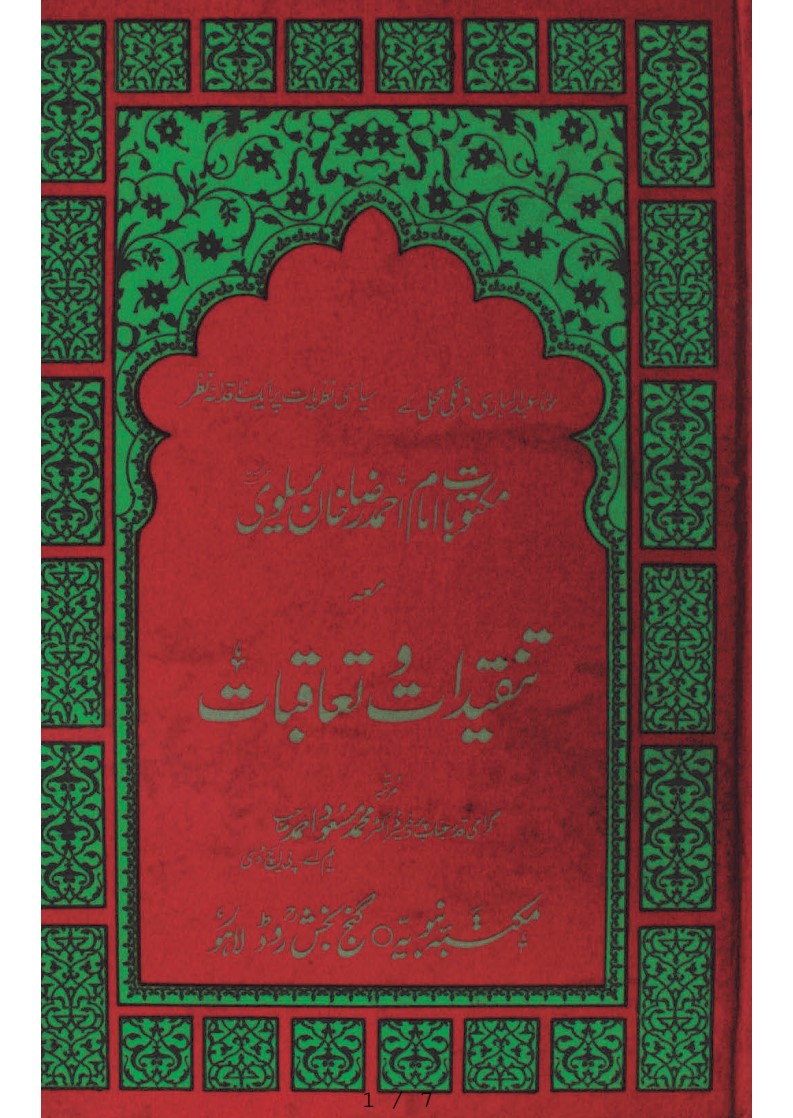 مولانا عبدالباری فرنگی محلی کے سیاسی نظریات پر ایک ناقدانہ نظر
مکتوبات امام احمد رضا خان بریلوی
معہ
تنقیدات و تعاقبات
مرتبہ
گرامی قدر جناب پروفیسر ڈاکٹر محمد مسعود احمد صاحب
ایم اے پی ایچ ڈی
مکتبہ نبویہ ○ گنج بخش روڈ لاہور
1 / 7